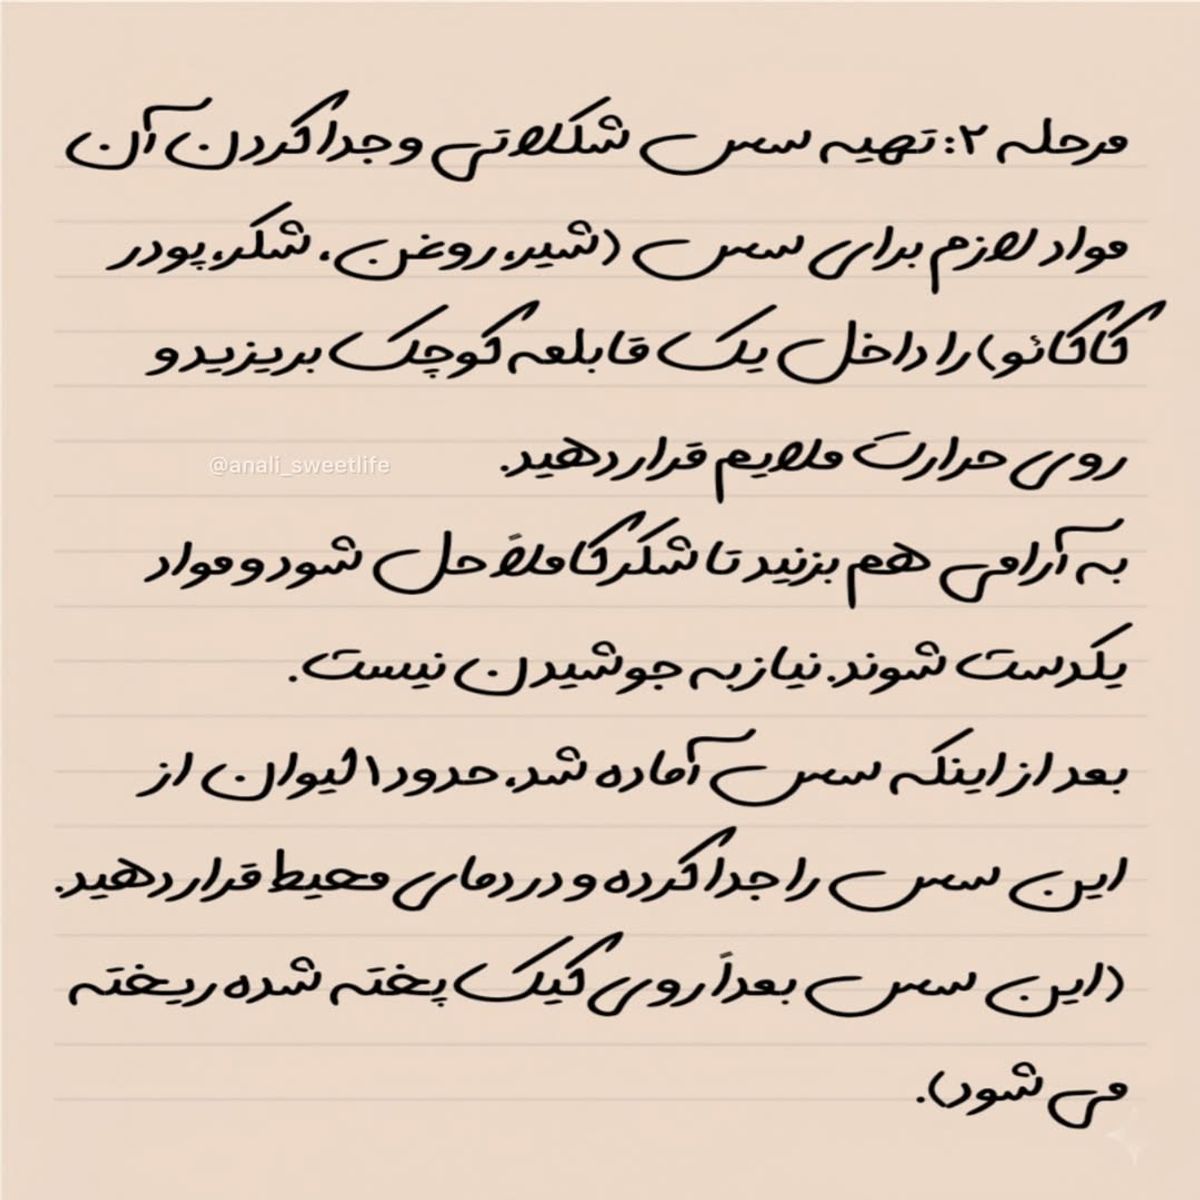 مرحله ۲: تهیه سس شکلاتی و جدا کردن آن
مواد لازم برای سس (شیر، روغن، شکر، پودر
کاکائو) را داخل یک قابلمه کوچک بریزید و
روی حرارت ملایم قرار دهید.
@anali_sweetlife
به آرامی هم بزنید تا شکر کاملاً حل شود و مواد
یکدست شوند. نیاز به جوشیدن نیست.
بعد از اینکه سس آماده شد، حدود ۱ لیوان از
این سس را جدا کرده و در دمای محیط قرار دهید.
(این سس بعداً روی کیک پخته شده ریخته
می شود).